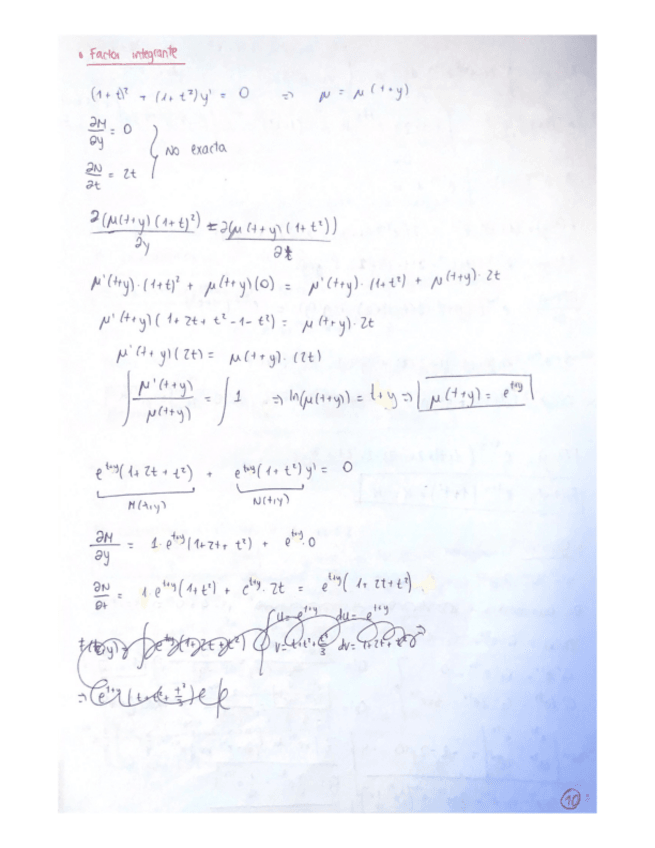 • Factor integrante
(1+t)² + (1+t²)y' = 0 => μ = μ(t+y)
∂M/∂y = 0
No exacta
∂N/∂t = 2t
∂(μ(t+y)(1+t)²)/∂y = ∂(μ(t+y)(1+t²))/∂t
μ'(t+y)·(1+t)² + μ(t+y)(0) = μ'(t+y)·(1+t²) + μ(t+y)·2t
μ'(t+y)(1+2t+t²-1-t²) = μ(t+y)·2t
μ'(t+y)(2t) = μ(t+y)·(2t)
∫ μ'(t+y)/μ(t+y) = ∫ 1 => ln(μ(t+y)) = t+y => μ(t+y) = e^{t+y}
e^{t+y}(1+2t+t²) + e^{t+y}(1+t²)y' = 0
M(t,y) N(t,y)
∂M/∂y = 1·e^{t+y}(1+2t+t²) + e^{t+y}·0
∂N/∂t = 1·e^{t+y}(1+t²) + e^{t+y}·2t = e^{t+y}(1+2t+t²)
10